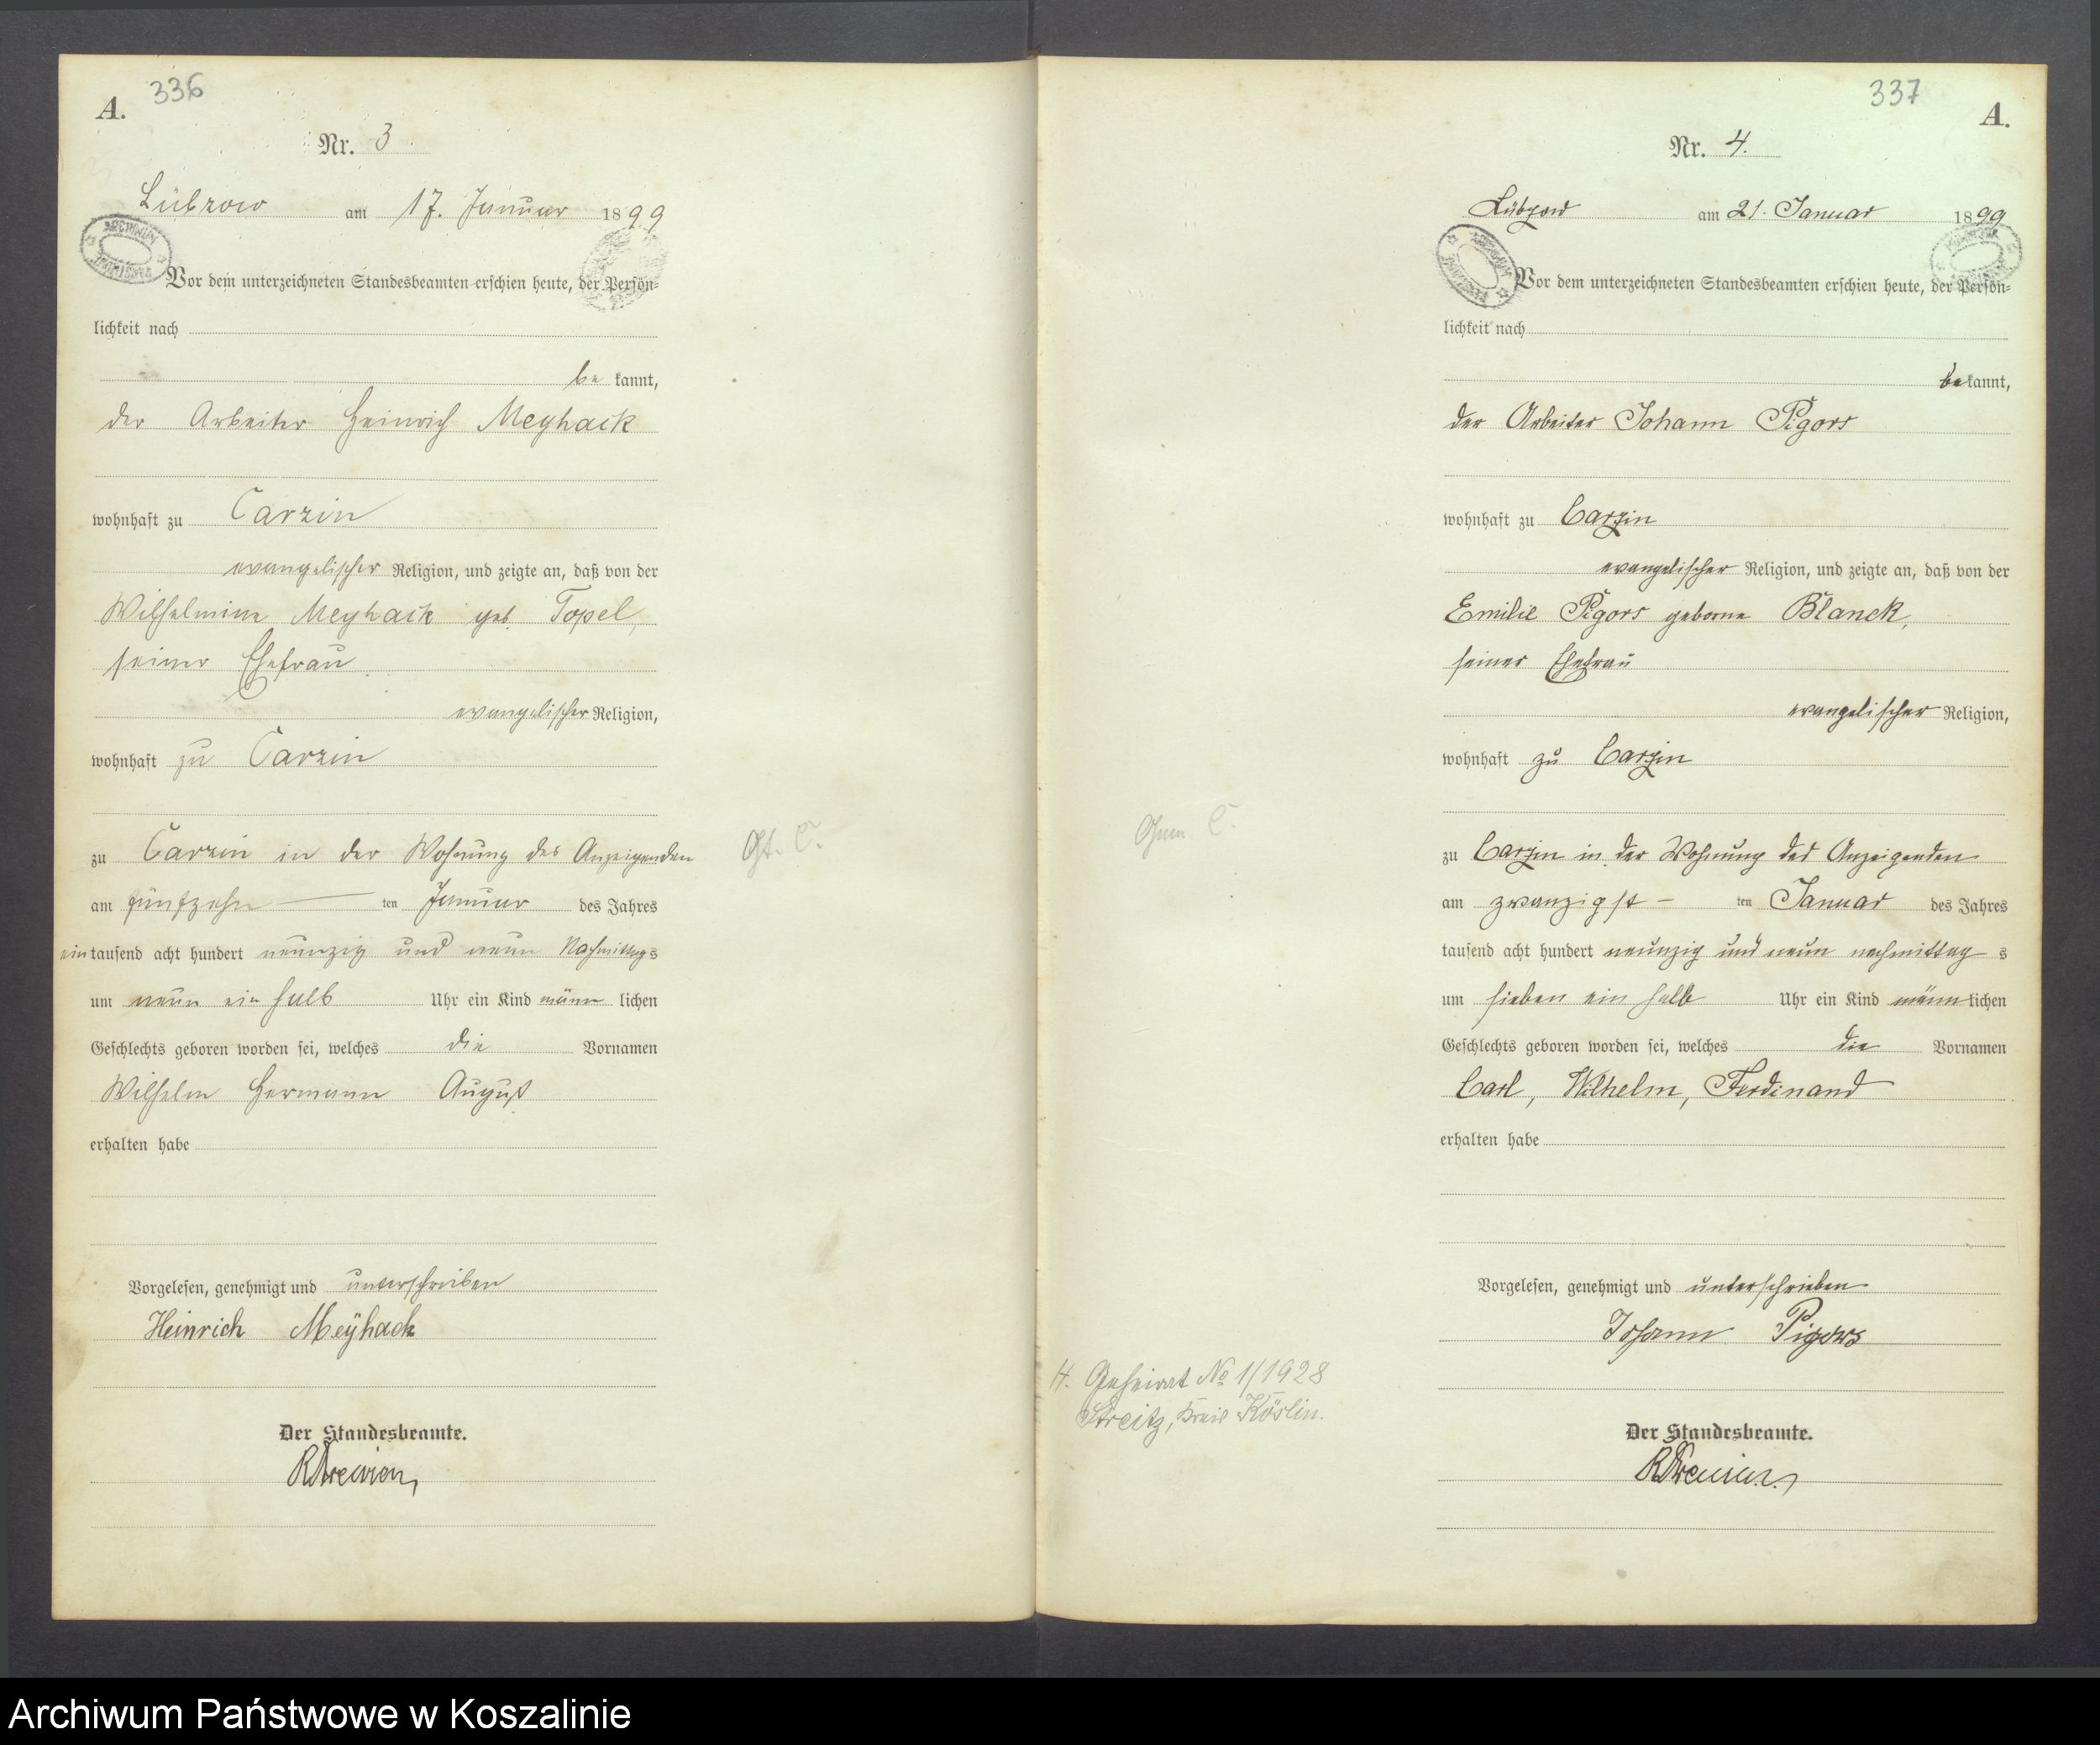 336
A.
Nr. 3
Lübzow am 17. Januar 1899
ARCHIWUM
Vor dem unterzeichneten Standesbeamten erschien heute, der Persön-
lichkeit nach
be kannt,
der Arbeiter Heinrich Meyhack
wohnhaft zu Carzin
evangelischer Religion, und zeigte an, daß von der
Wilhelmine Meyhack geb. Topel,
seiner Ehefrau
evangelischer Religion,
wohnhaft zu Carzin
zu Carzin in der Wohnung des Anzeigenden
am fünfzehn ten Januar des Jahres
ein tausend acht hundert neunzig und neun Nachmittags
um neun ein halb Uhr ein Kind männ lichen
Geschlechts geboren worden sei, welches die Vornamen
Wilhelm Hermann August
erhalten habe
Vorgelesen, genehmigt und unterschrieben
Heinrich Meÿhack
Der Standesbeamte.
337
A.
Nr. 4.
Lübzow am 21. Januar 1899
Vor dem unterzeichneten Standesbeamten erschien heute, der Persön-
lichkeit nach
bekannt,
der Arbeiter Johann Pigors
wohnhaft zu Carzin
evangelischer Religion, und zeigte an, daß von der
Emilie Pigors geborne Blanck,
seiner Ehefrau
evangelischer Religion,
wohnhaft zu Carzin
zu Carzin in der Wohnung des Anzeigenden
am zwanzigst – ten Januar des Jahres
tausend acht hundert neunzig und neun nachmittag s
um sieben ein halb Uhr ein Kind männlichen
Geschlechts geboren worden sei, welches die Vornamen
Carl, Wilhelm, Ferdinand
erhalten habe
Vorgelesen, genehmigt und unterschrieben
Johann Pigors
4. Geheirat No 1/1928
Streitz, Kreis Köslin.
Der Standesbeamte.
Archiwum Państwowe w Koszalinie